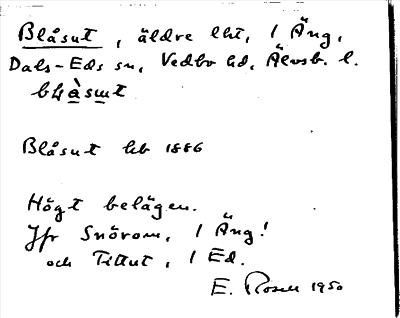 Blåsut, äldre lht, 1 Äng,
Dals-Eds sn, Vedbo hd, Älvsb. l.
Blåsut hb 1886
Högt belägen.
Jfr Snörom, 1 Äng!
och Tittut, 1 Ed.
E. Rosell 1950